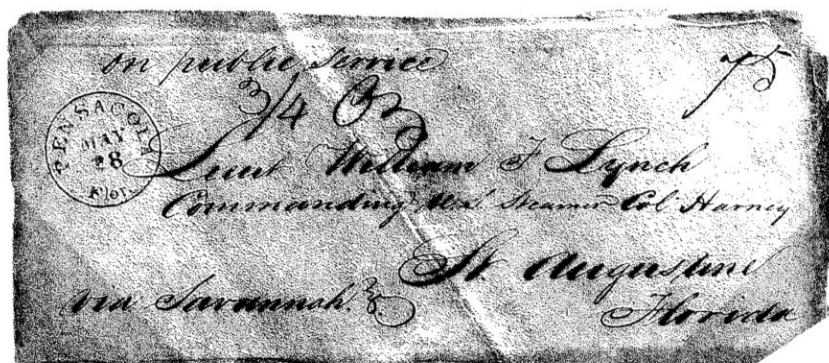 on public service
75
3/4 Oz
PENSACOLA
MAY
28
Flor.
Lieut William F Lynch
Commanding U.S. Steamer Col Harney
St. Augustine
via Savannah.
Florida